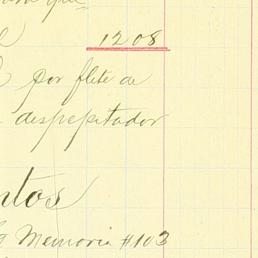 que
1208
por flete de
despepitador
ntos
Memoria #103